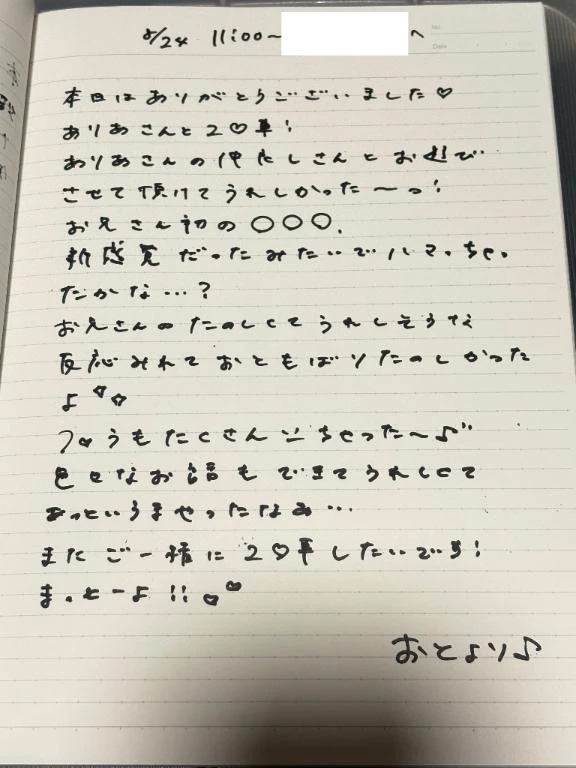 8/24 11:00~ へ
本日はありがとうございました♡
ありあさんと2♡車!
ありあさんの仲良しさんとお遊び
させて頂けてうれしかった~っ!
お兄さん初の〇〇〇.
新感覚だったみたいでハマっちゃっ
たかな…?
お兄さんのたのしくてうれしそうな
反応みれておともばりたのしかった
よ♡♡
フ♡うもたくさんしちゃった~♪
色々なお話もできてうれしくて
あっというまやったなぁ…
またご一緒に2♡車したいです!
まっとーよ!!♡♡
おとより♪